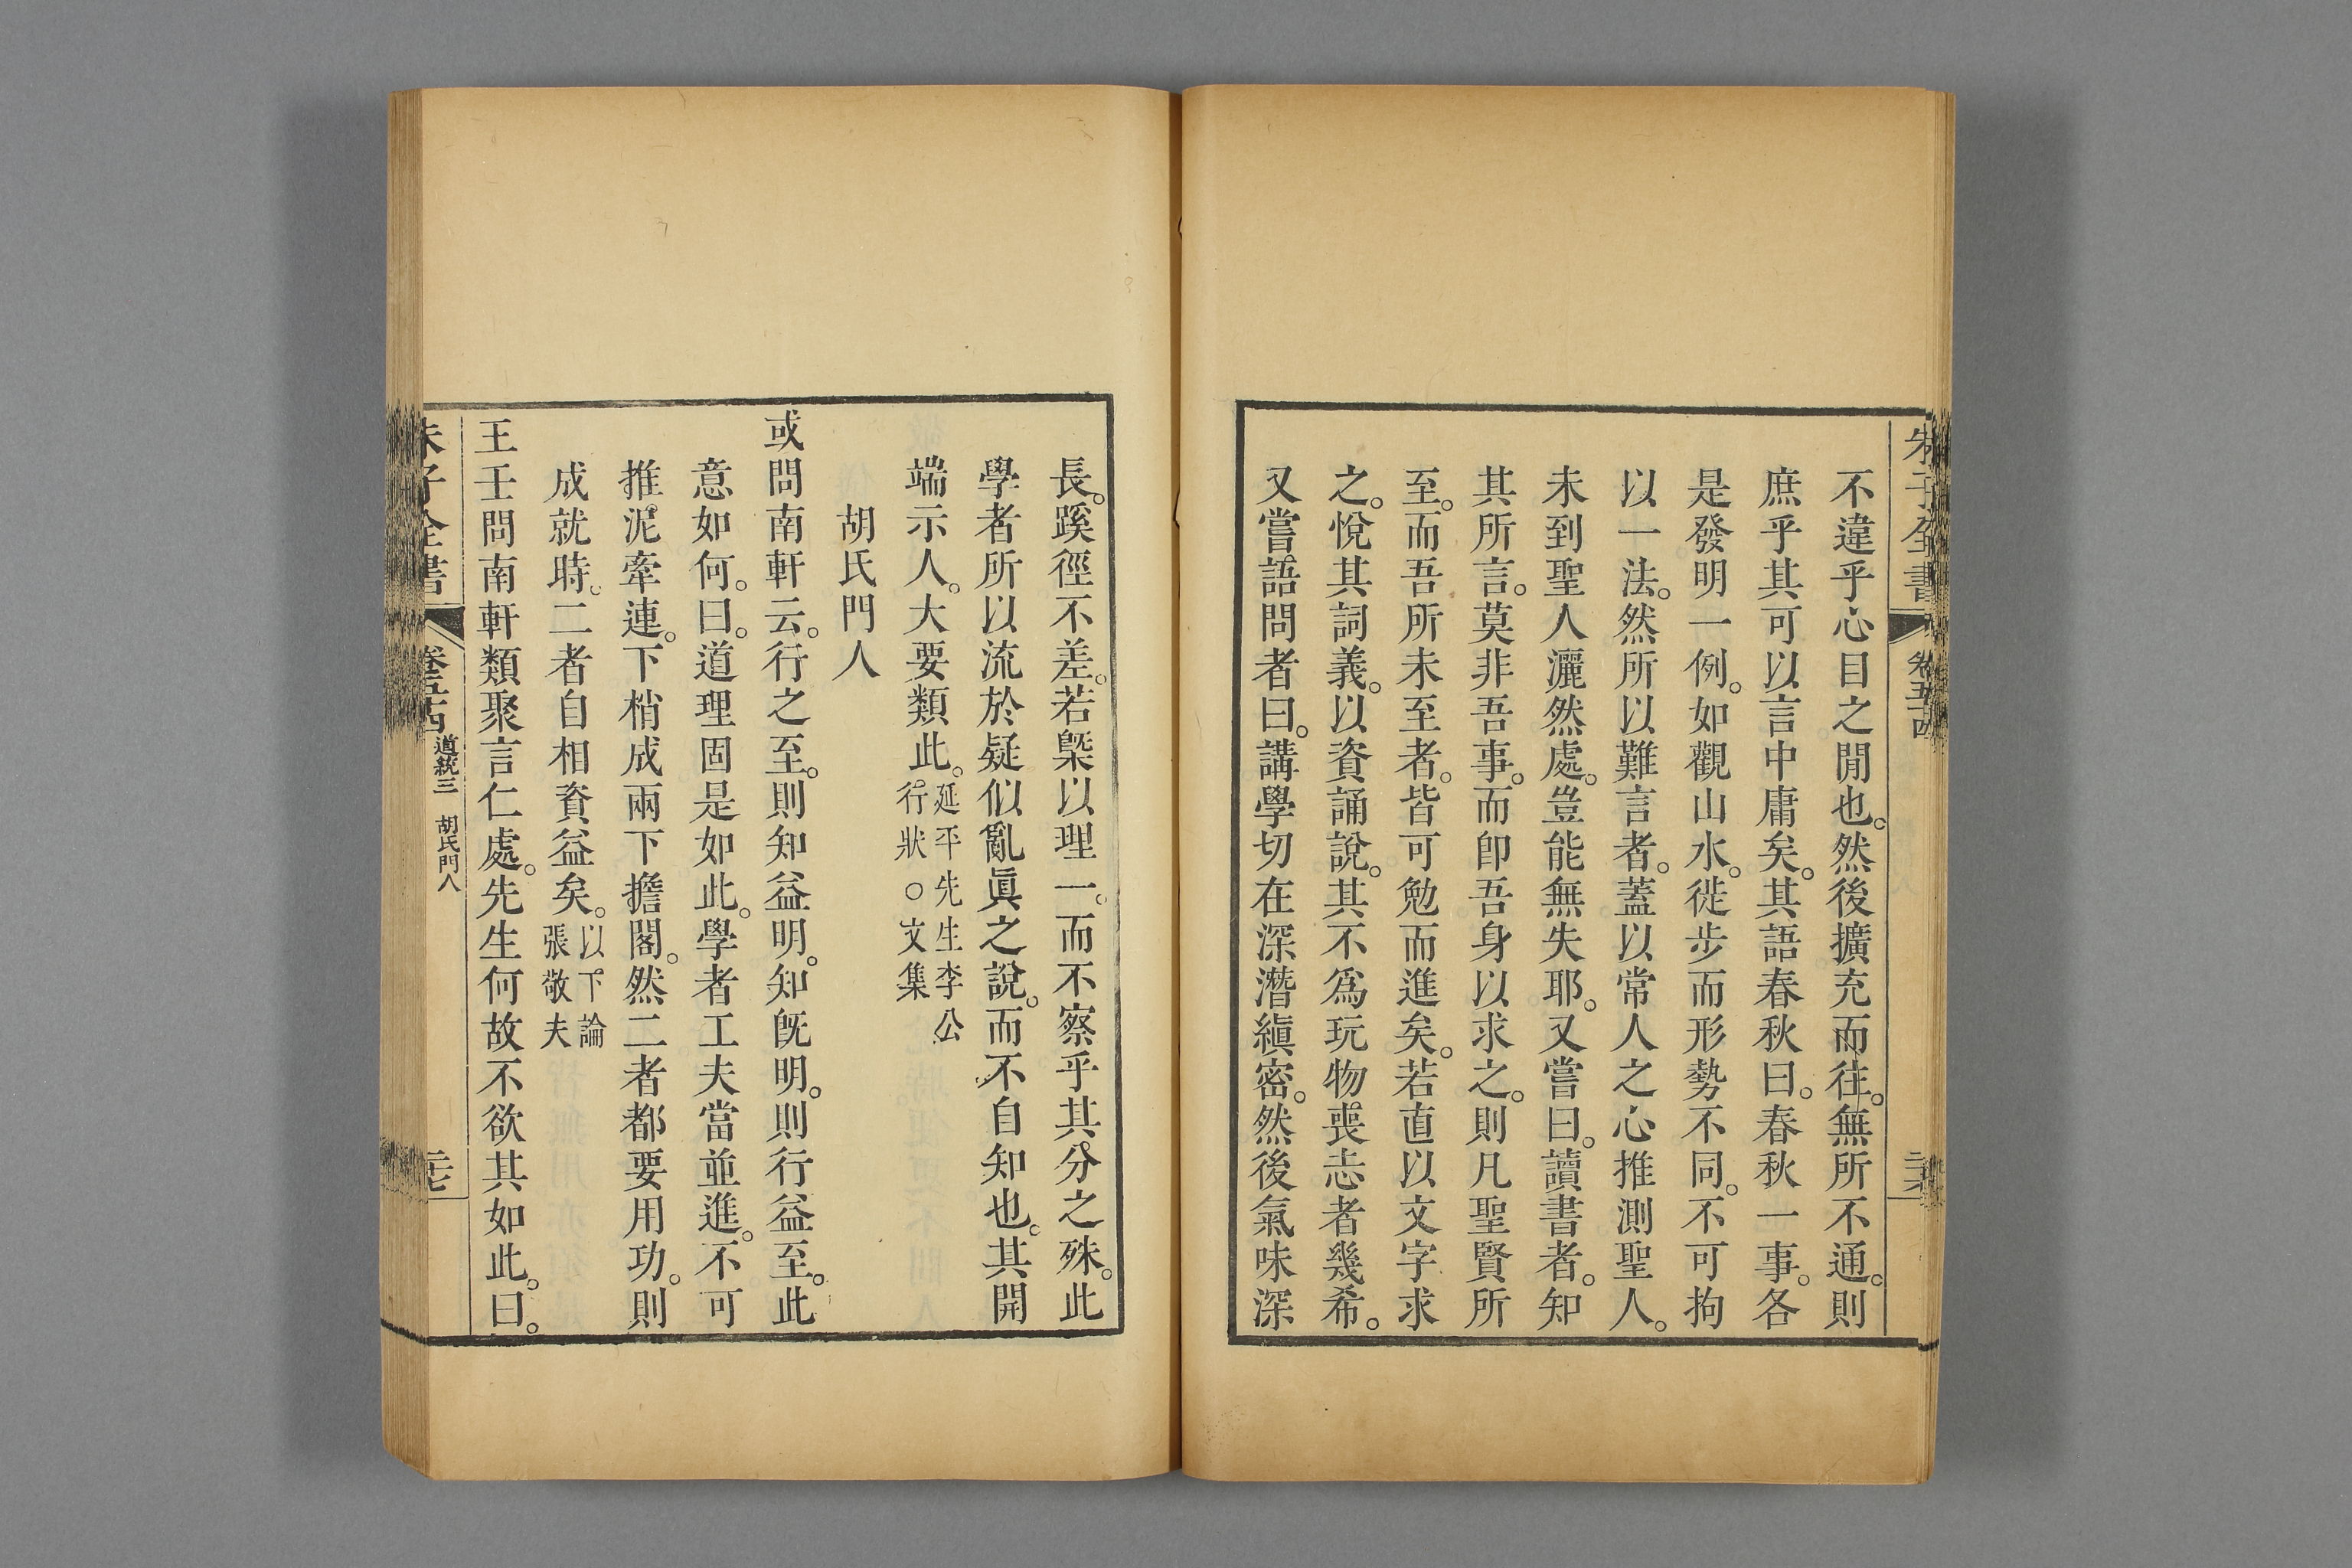 朱子全書 卷五十四
不違乎心目之閒也。然後擴充而往。無所不通。則
庶乎其可以言中庸矣。其語春秋曰。春秋一事。各
是發明一例。如觀山水。徙步而形勢不同。不可拘
以一法。然所以難言者。蓋以常人之心推測聖人。
未到聖人灑然處。豈能無失耶。又嘗曰。讀書者。知
其所言。莫非吾事。而卽吾身以求之。則凡聖賢所
至。而吾所未至者。皆可勉而進矣。若直以文字求
之。悅其詞義。以資誦說。其不爲玩物喪志者幾希。
又嘗語問者曰。講學切在深潛縝密。然後氣味深
長。蹊徑不差。若槩以理一。而不察乎其分之殊。此
學者所以流於疑似亂眞之說。而不自知也。其開
端示人。大要類此。延平先生李公
行狀○文集
胡氏門人
或問南軒云。行之至。則知益明。知旣明。則行益至。此
意如何。曰。道理固是如此。學者工夫當並進。不可
推泥牽連。下梢成兩下擔閣。然二者都要用功。則
成就時。二者自相資益矣。以下論
張敬夫
王壬問南軒類聚言仁處。先生何故不欲其如此。曰。
朱子全書 卷五十四 道統三 胡氏門人 二十七